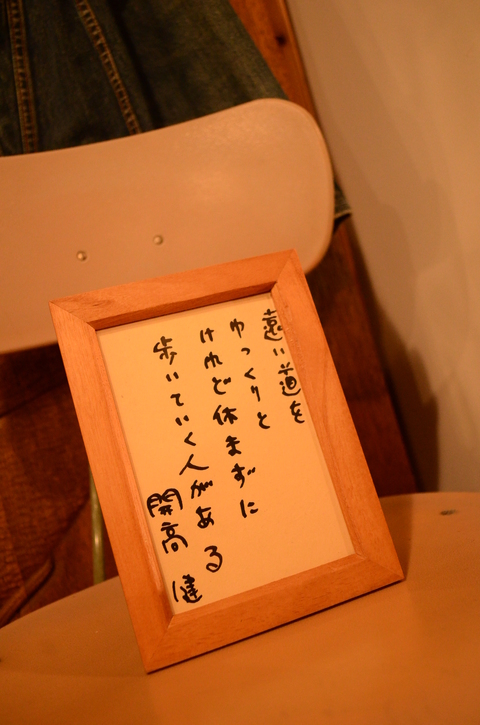 遠い道を
ゆっくりと
けれど休まずに
歩いていく人がある
開高健